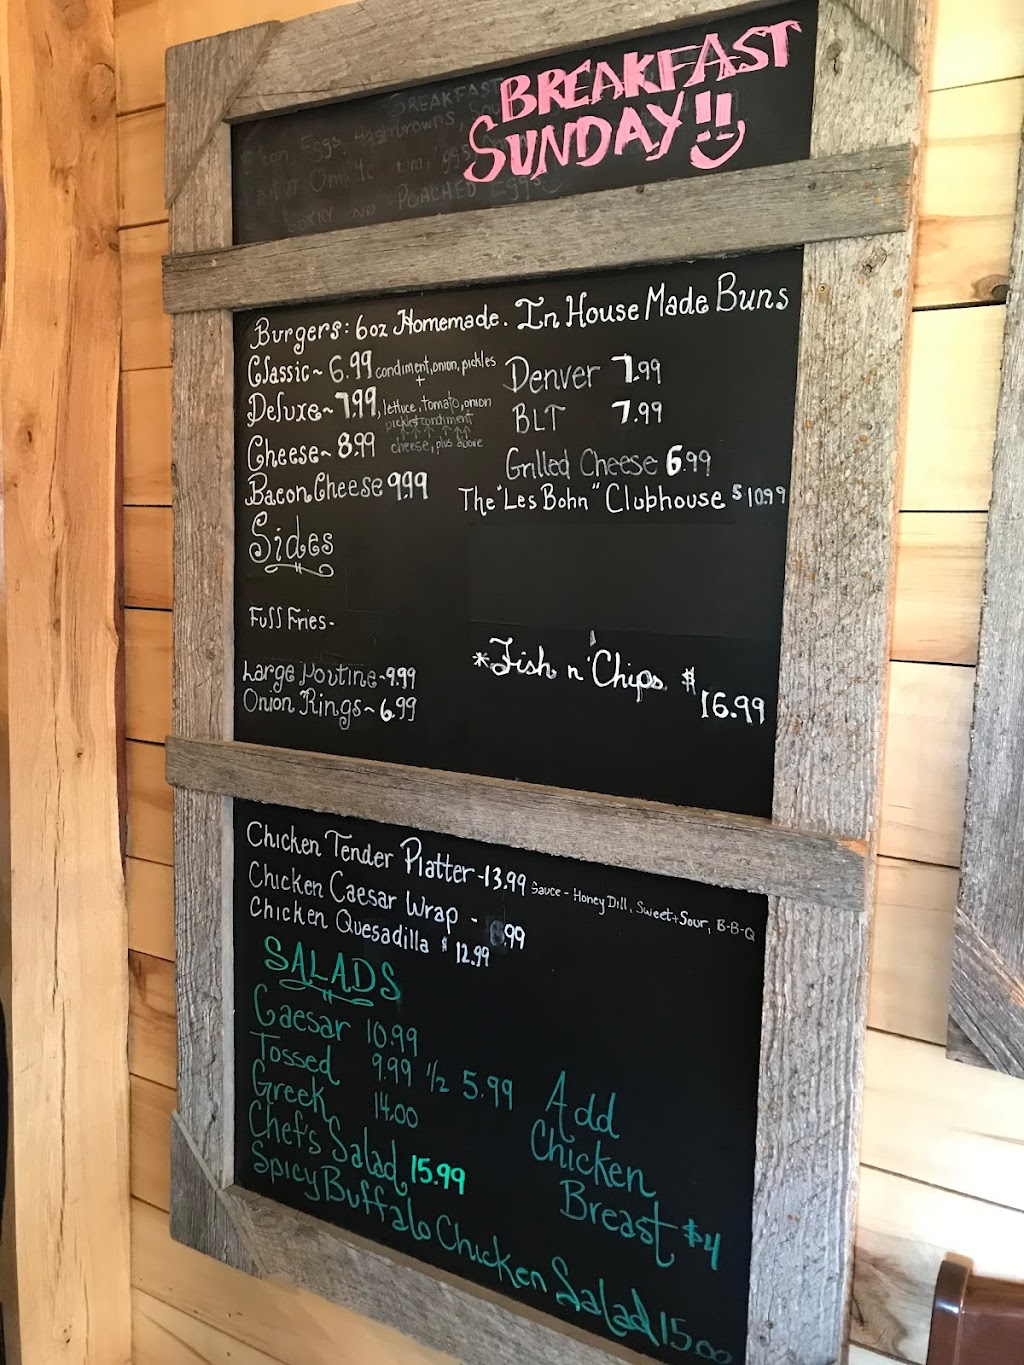 BREAKFAST
SUNDAY!!
BREAKFAST
Eggs, Hashbrowns,
SORRY NO POACHED Eggs
Burgers: 6oz Homemade. In House Made Buns
Classic~ 6.99 condiment, onion, pickles
+
Deluxe~ 7.99, lettuce, tomato, onion
pickles condiment
Cheese~ 8.99 cheese, plus above
Bacon Cheese 9.99
Denver 7.99
BLT 7.99
Grilled Cheese 6.99
The "Les Bohn" Clubhouse $10.99
Sides
Full Fries-
Large Poutine~9.99
Onion Rings~ 6.99
*Fish n' Chips. $
16.99
Chicken Tender Platter -13.99 Sauce - Honey Dill, Sweet+Sour, B-B-Q
Chicken Caesar Wrap - .99
Chicken Quesadilla $12.99
SALADS
Caesar 10.99
Tossed 9.99 1/2 5.99
Greek 14.00
Chef's Salad 15.99
Spicy Buffalo Chicken Salad 15.00
Add
Chicken
Breast $4